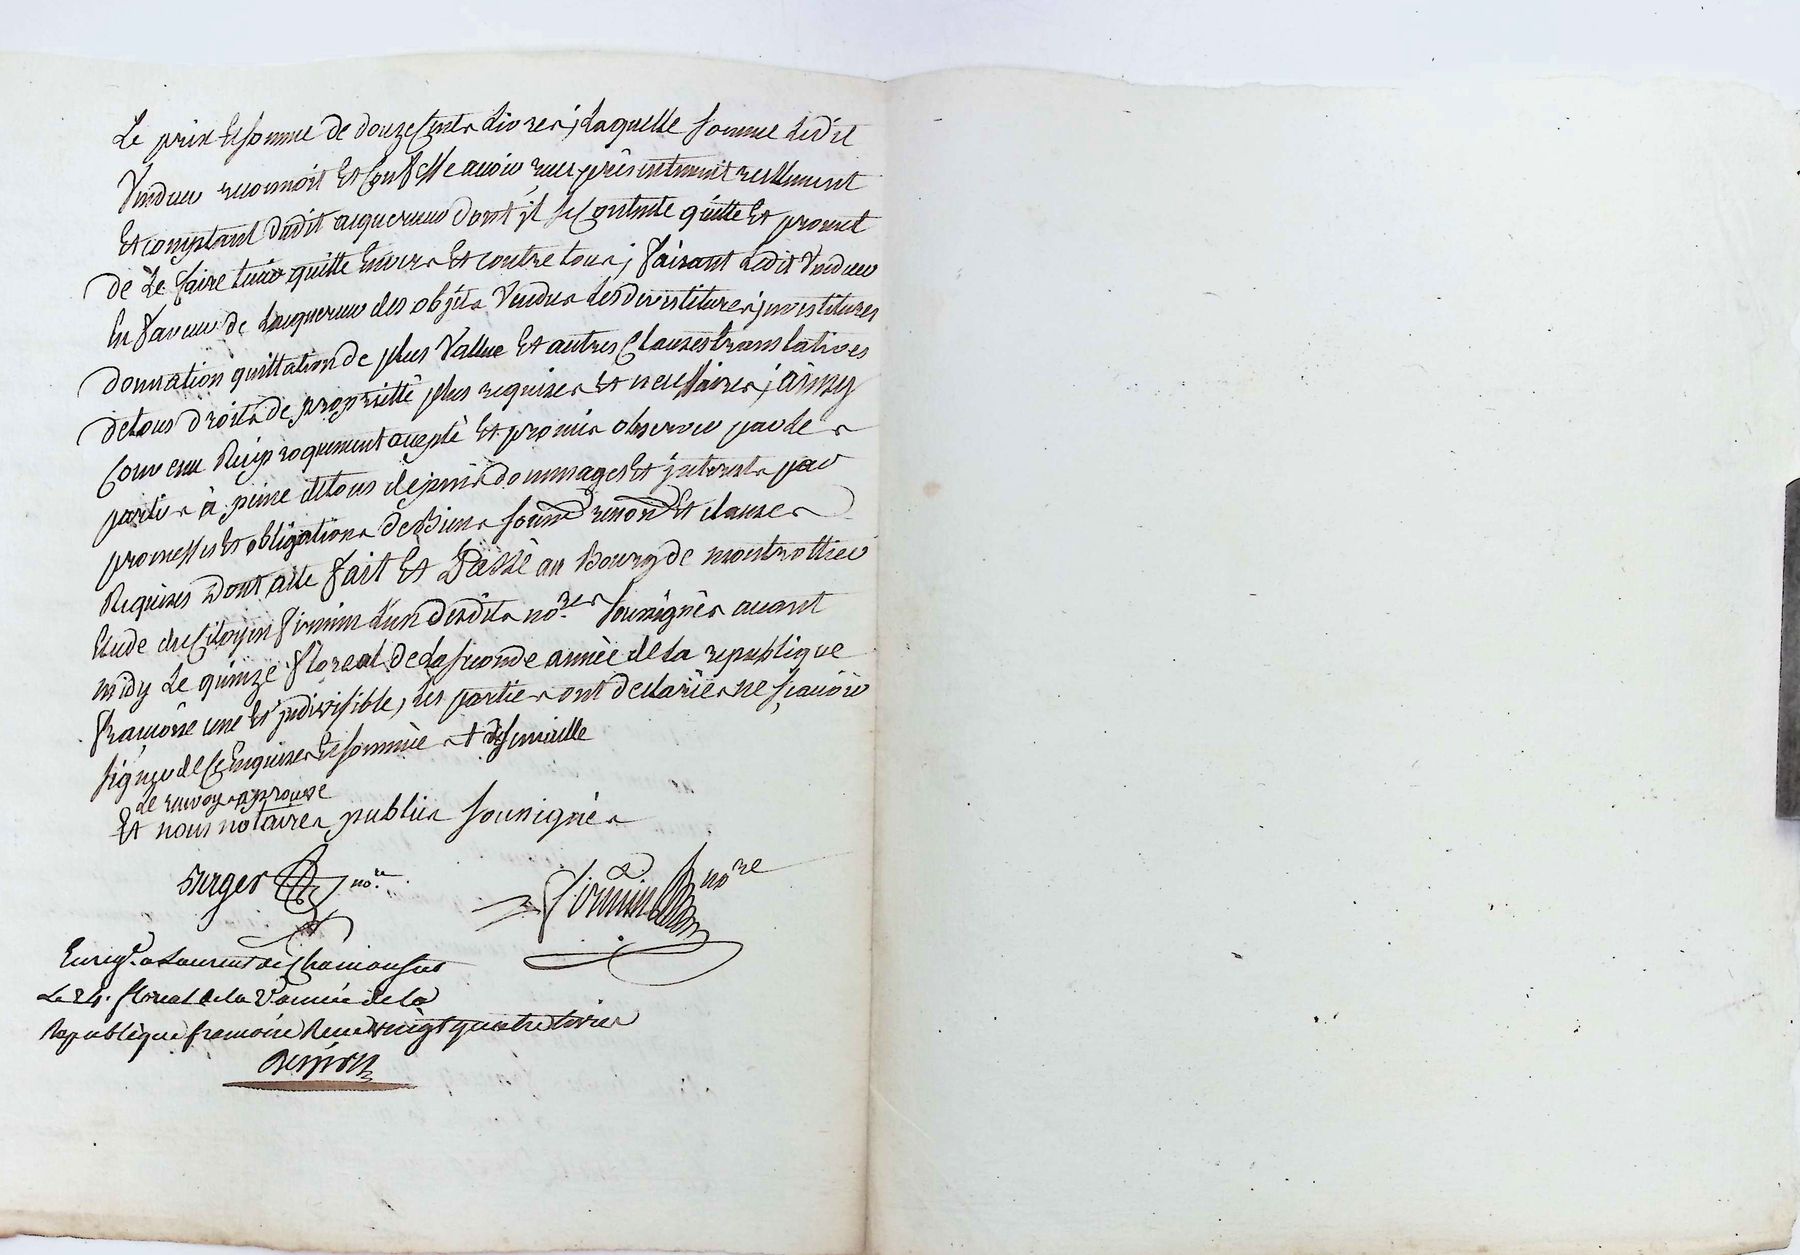 Le prix & somme de douze Cents Livres, Laquelle somme Ledit
Vendeur reconnoit Et Confesse avoir reçu présentement reellement
Et comptant dudit acquereur dont il se Contente quitte Et promet
de Le faire tenir quitte Envers Et contre tous, faisant Ledit Vendeur
En faveur de Lacquereur des objets Vendus Les devestitures, investitures
donnation quittation de plus Vallue Et autres Clauses translatives
de tous droits de propriétté plus requises Et necessaires, ainsy
Convenu Réciproquement accepté Et promis observer par les
parties à peine de tous depens dommages Et interests par
promesses Et obligations de Biens soumd renond Et clauses
Requises Dont acte fait Et Passé au Bourg de montrottier
Etude du Citoyen firmin L'un desdits no.res soussignés avant
midy Le quinze floreal de La seconde année de la republique
françoise une Et indivisible, Les parties ont declarées ne sçavoir
signer de ce Enquises Et sommées
Le renvoy approuvé
Et nous notaires publics soussignés
no.re
firmin no.re
Enregé. a Laurent de Chamousset
Le 24. floreal de la 2 année de la
Republique francoise Recu vingt quatre livres